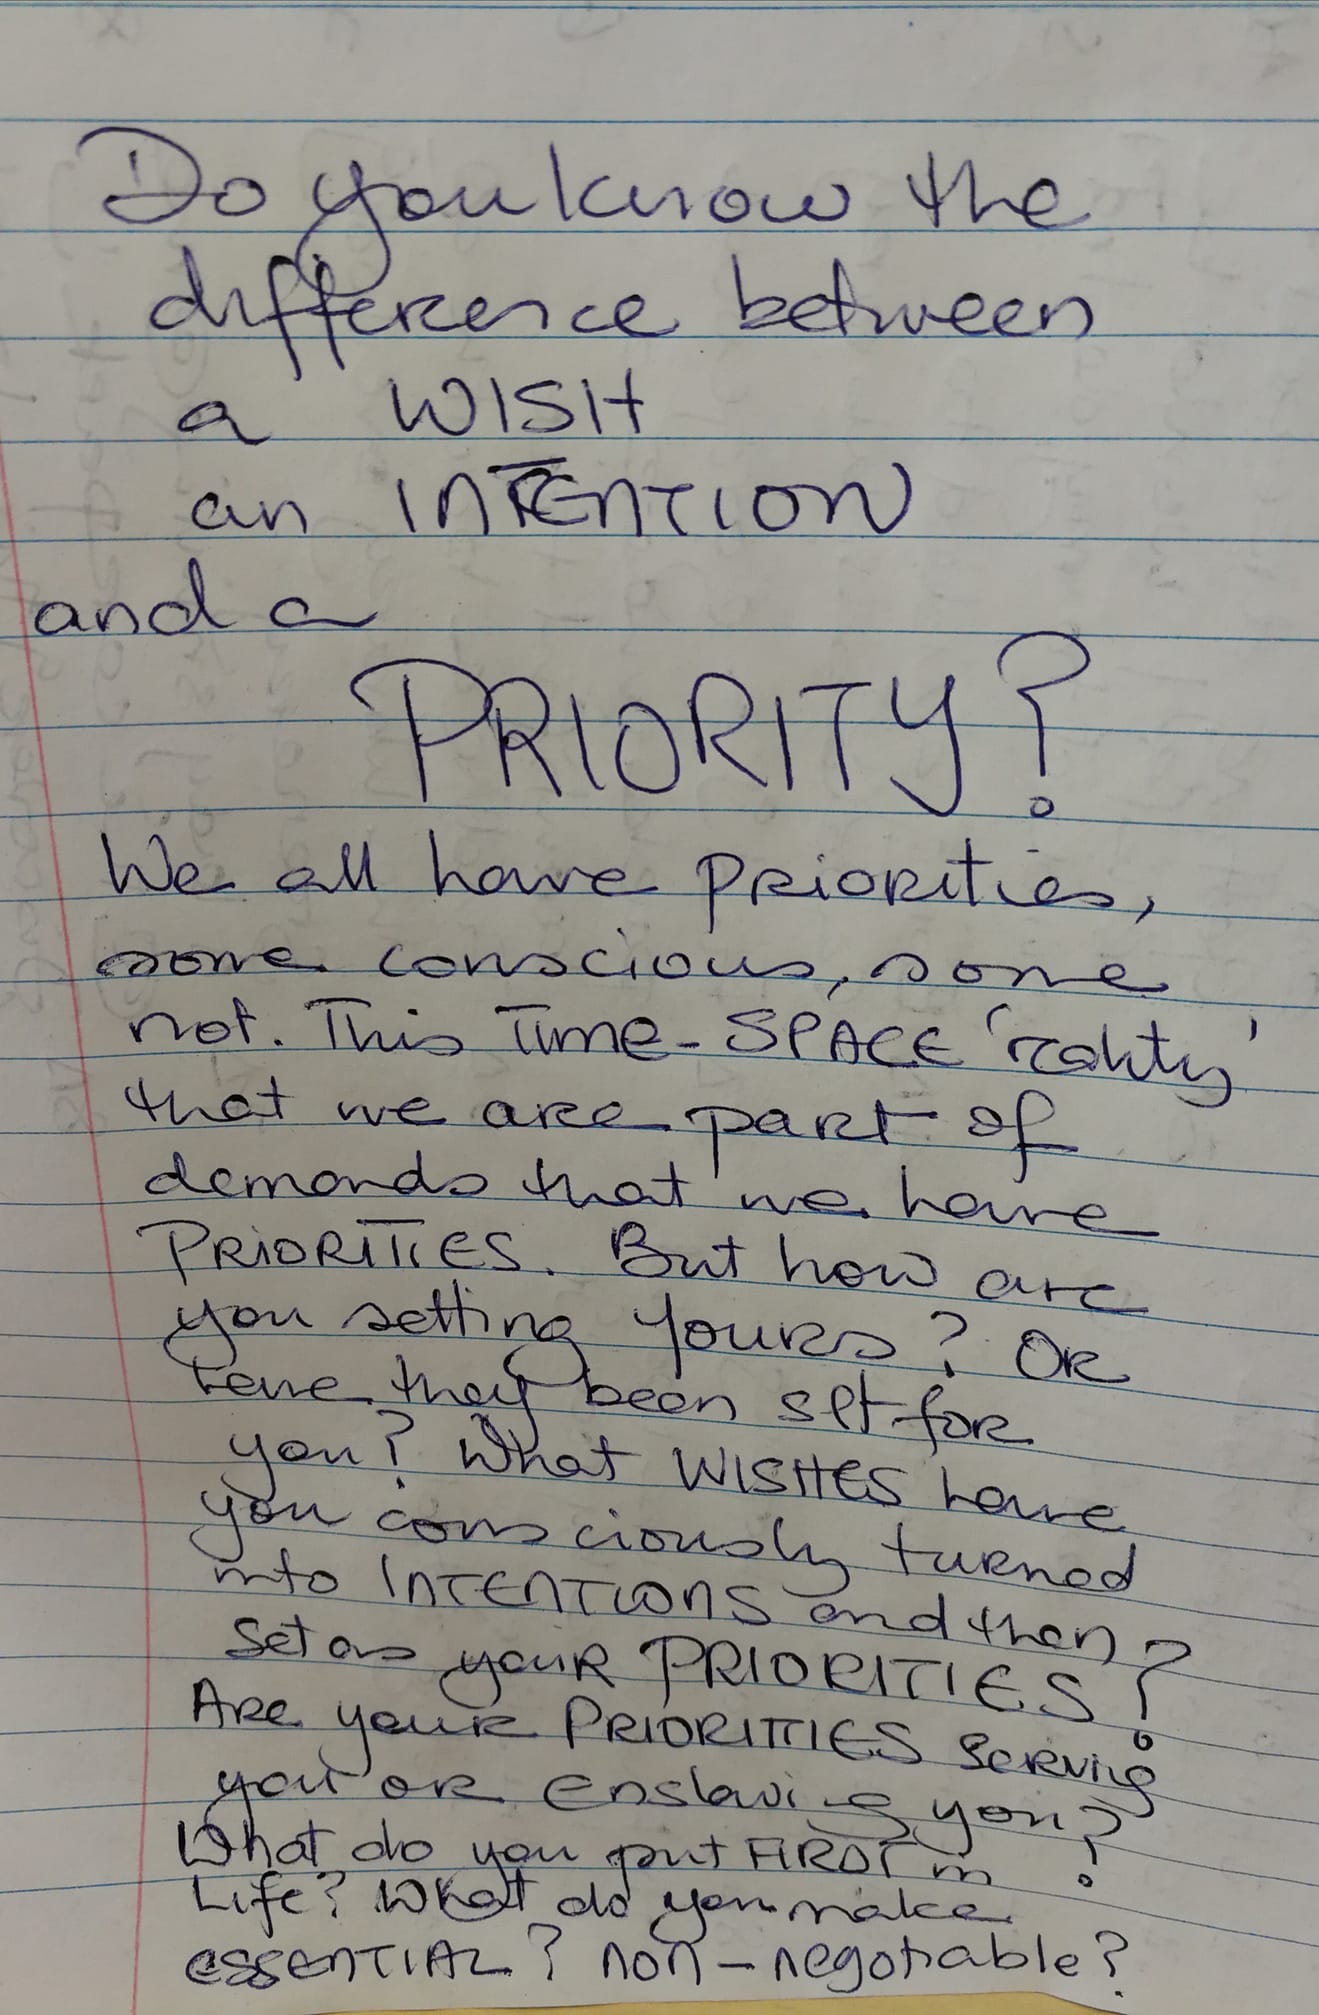 Do you know the
difference between
a WISH
an INTENTION
and a
PRIORITY?
We all have priorities,
some conscious, some
not. This Time-SPACE 'reality'
that we are part of
demands that we have
PRIORITIES. But how are
you setting yours? OR
have they been set for
you? What WISHES have
you consciously turned
into INTENTIONS and then
set as your PRIORITIES?
Are your PRIORITIES serving
you or enslaving you?
What do you put FIRST in
Life? What do you make
ESSENTIAL? non-negotiable?